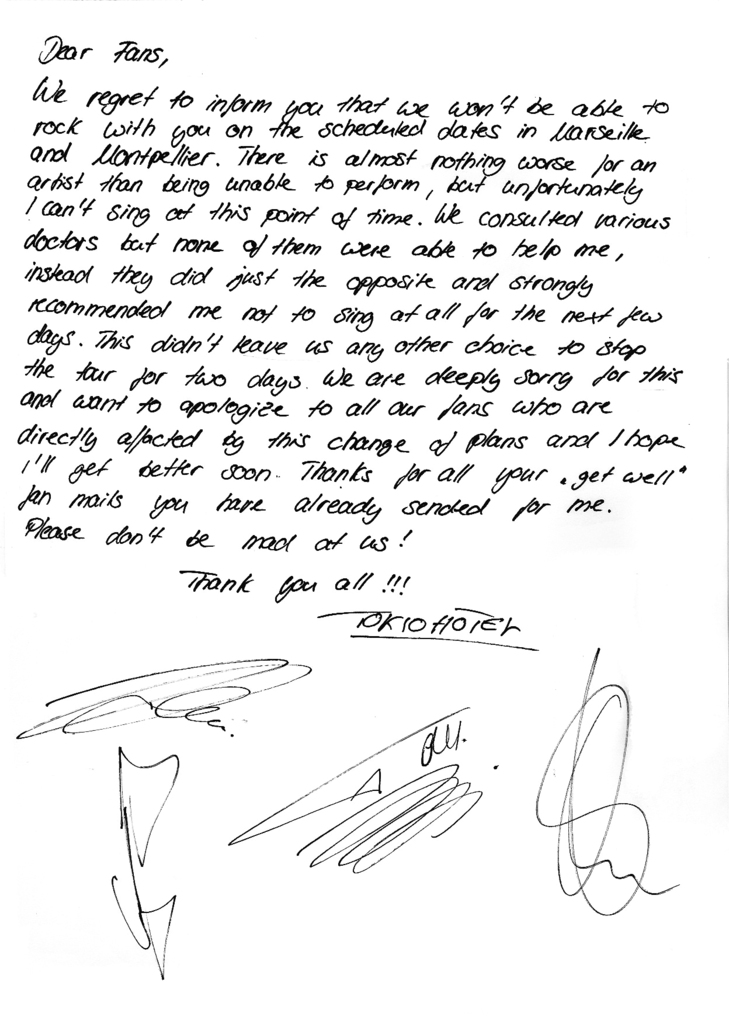 Dear Fans,
We regret to inform you that we won't be able to
rock with you on the scheduled dates in Marseille
and Montpellier. There is almost nothing worse for an
artist than being unable to perform, but unfortunately
I can't sing at this point of time. We consulted various
doctors but none of them were able to help me,
instead they did just the opposite and strongly
recommended me not to sing at all for the next few
days. This didn't leave us any other choice to stop
the tour for two days. We are deeply sorry for this
and want to apologize to all our fans who are
directly affected by this change of plans and I hope
I'll get better soon. Thanks for all your „get well"
fan mails you have already sended for me.
Please don't be mad at us!
Thank you all!!!
TOKIO HOTEL